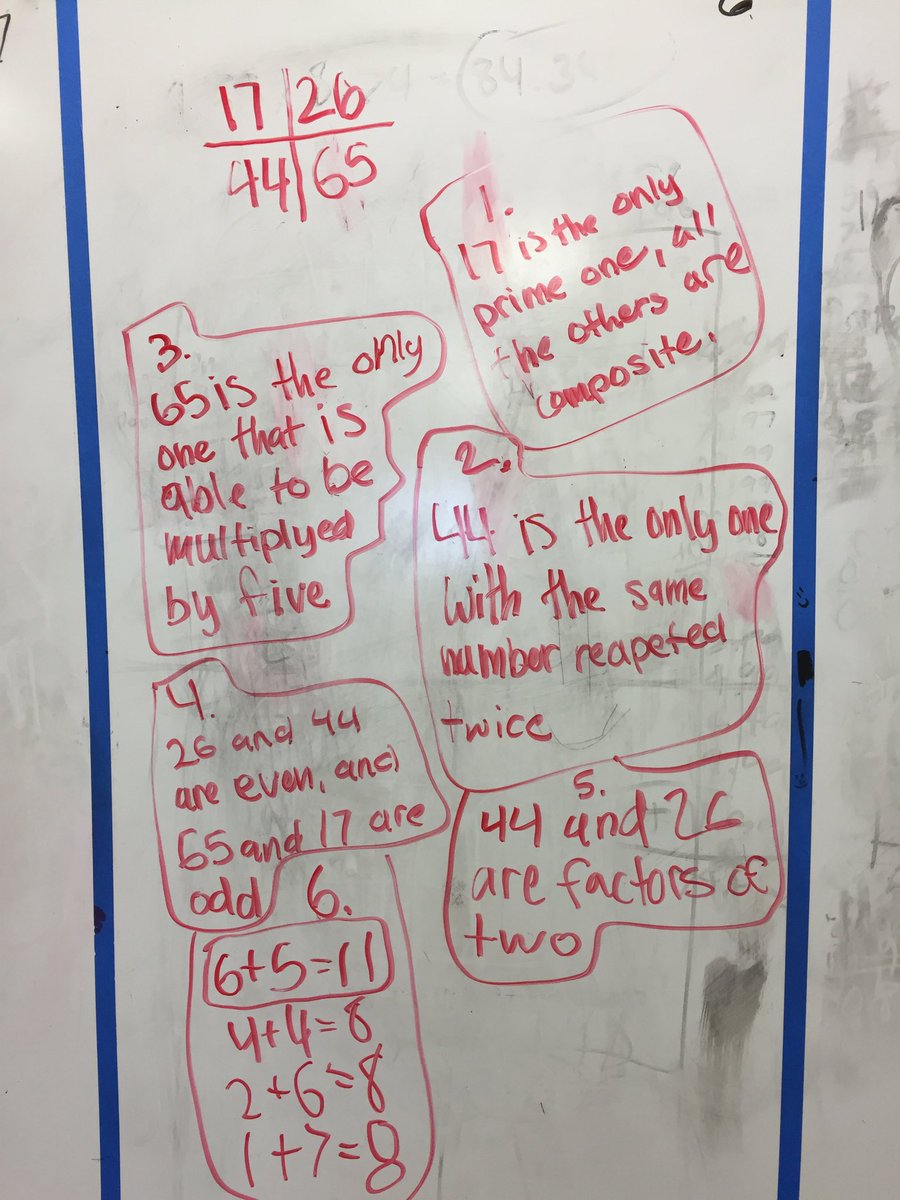 17 | 26
44 | 65
1.
17 is the only
prime one, all
the others are
composite.
2.
44 is the only one
with the same
number reapeted
twice
3.
65 is the only
one that is
able to be
multiplyed
by five
4.
26 and 44
are even, and
65 and 17 are
odd
5.
44 and 26
are factors of
two
6.
6+5=11
4+4=8
2+6=8
1+7=8
84.34